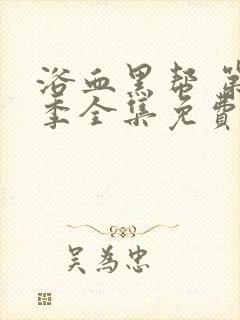 浴血黑帮 第
季全集免费
吴为忠